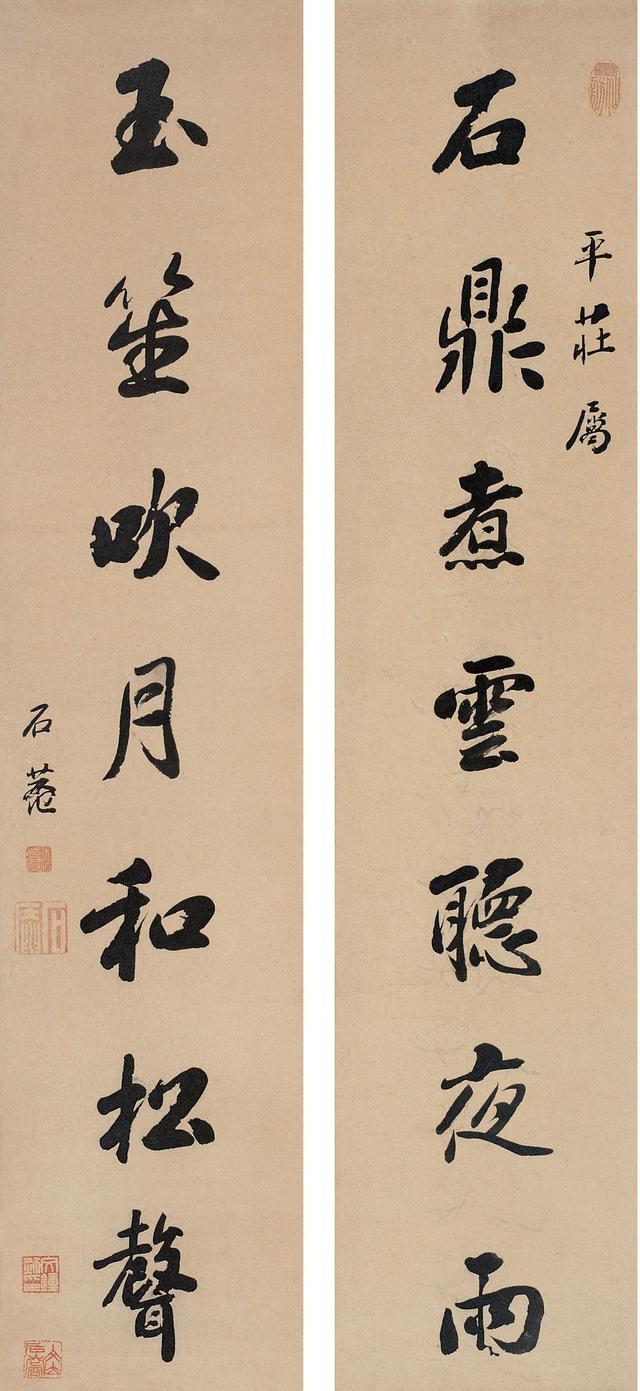 平莊屬
石鼎煮雲聽夜雨
玉笙吹月和松聲
石菴